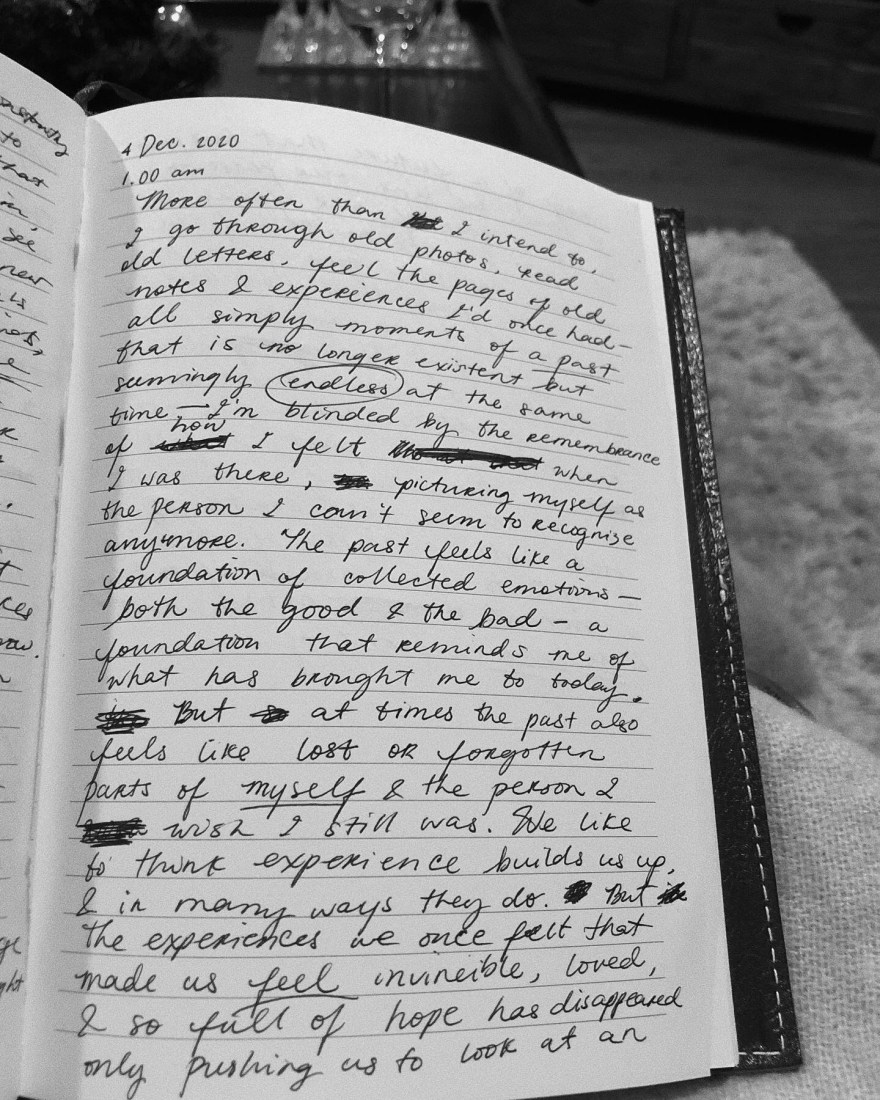 4 Dec. 2020
1.00 am
More often than I intend to,
I go through old photos, read
old letters, feel the pages of old
notes & experiences I'd once had—
all simply moments of a past
that is no longer existent but
seemingly endless at the same
time — I'm blinded by the remembrance
of how I felt when
I was there, picturing myself as
the person I can't seem to recognise
anymore. The past feels like a
foundation of collected emotions —
both the good & the bad – a
foundation that reminds me of
what has brought me to today.
But at times the past also
feels like lost or forgotten
parts of myself & the person I
wish I still was. We like
to think experience builds us up,
& in many ways they do. But
the experiences we once felt that
made us feel invincible, loved,
& so full of hope has disappeared
only pushing us to look at an
to
that
see
new